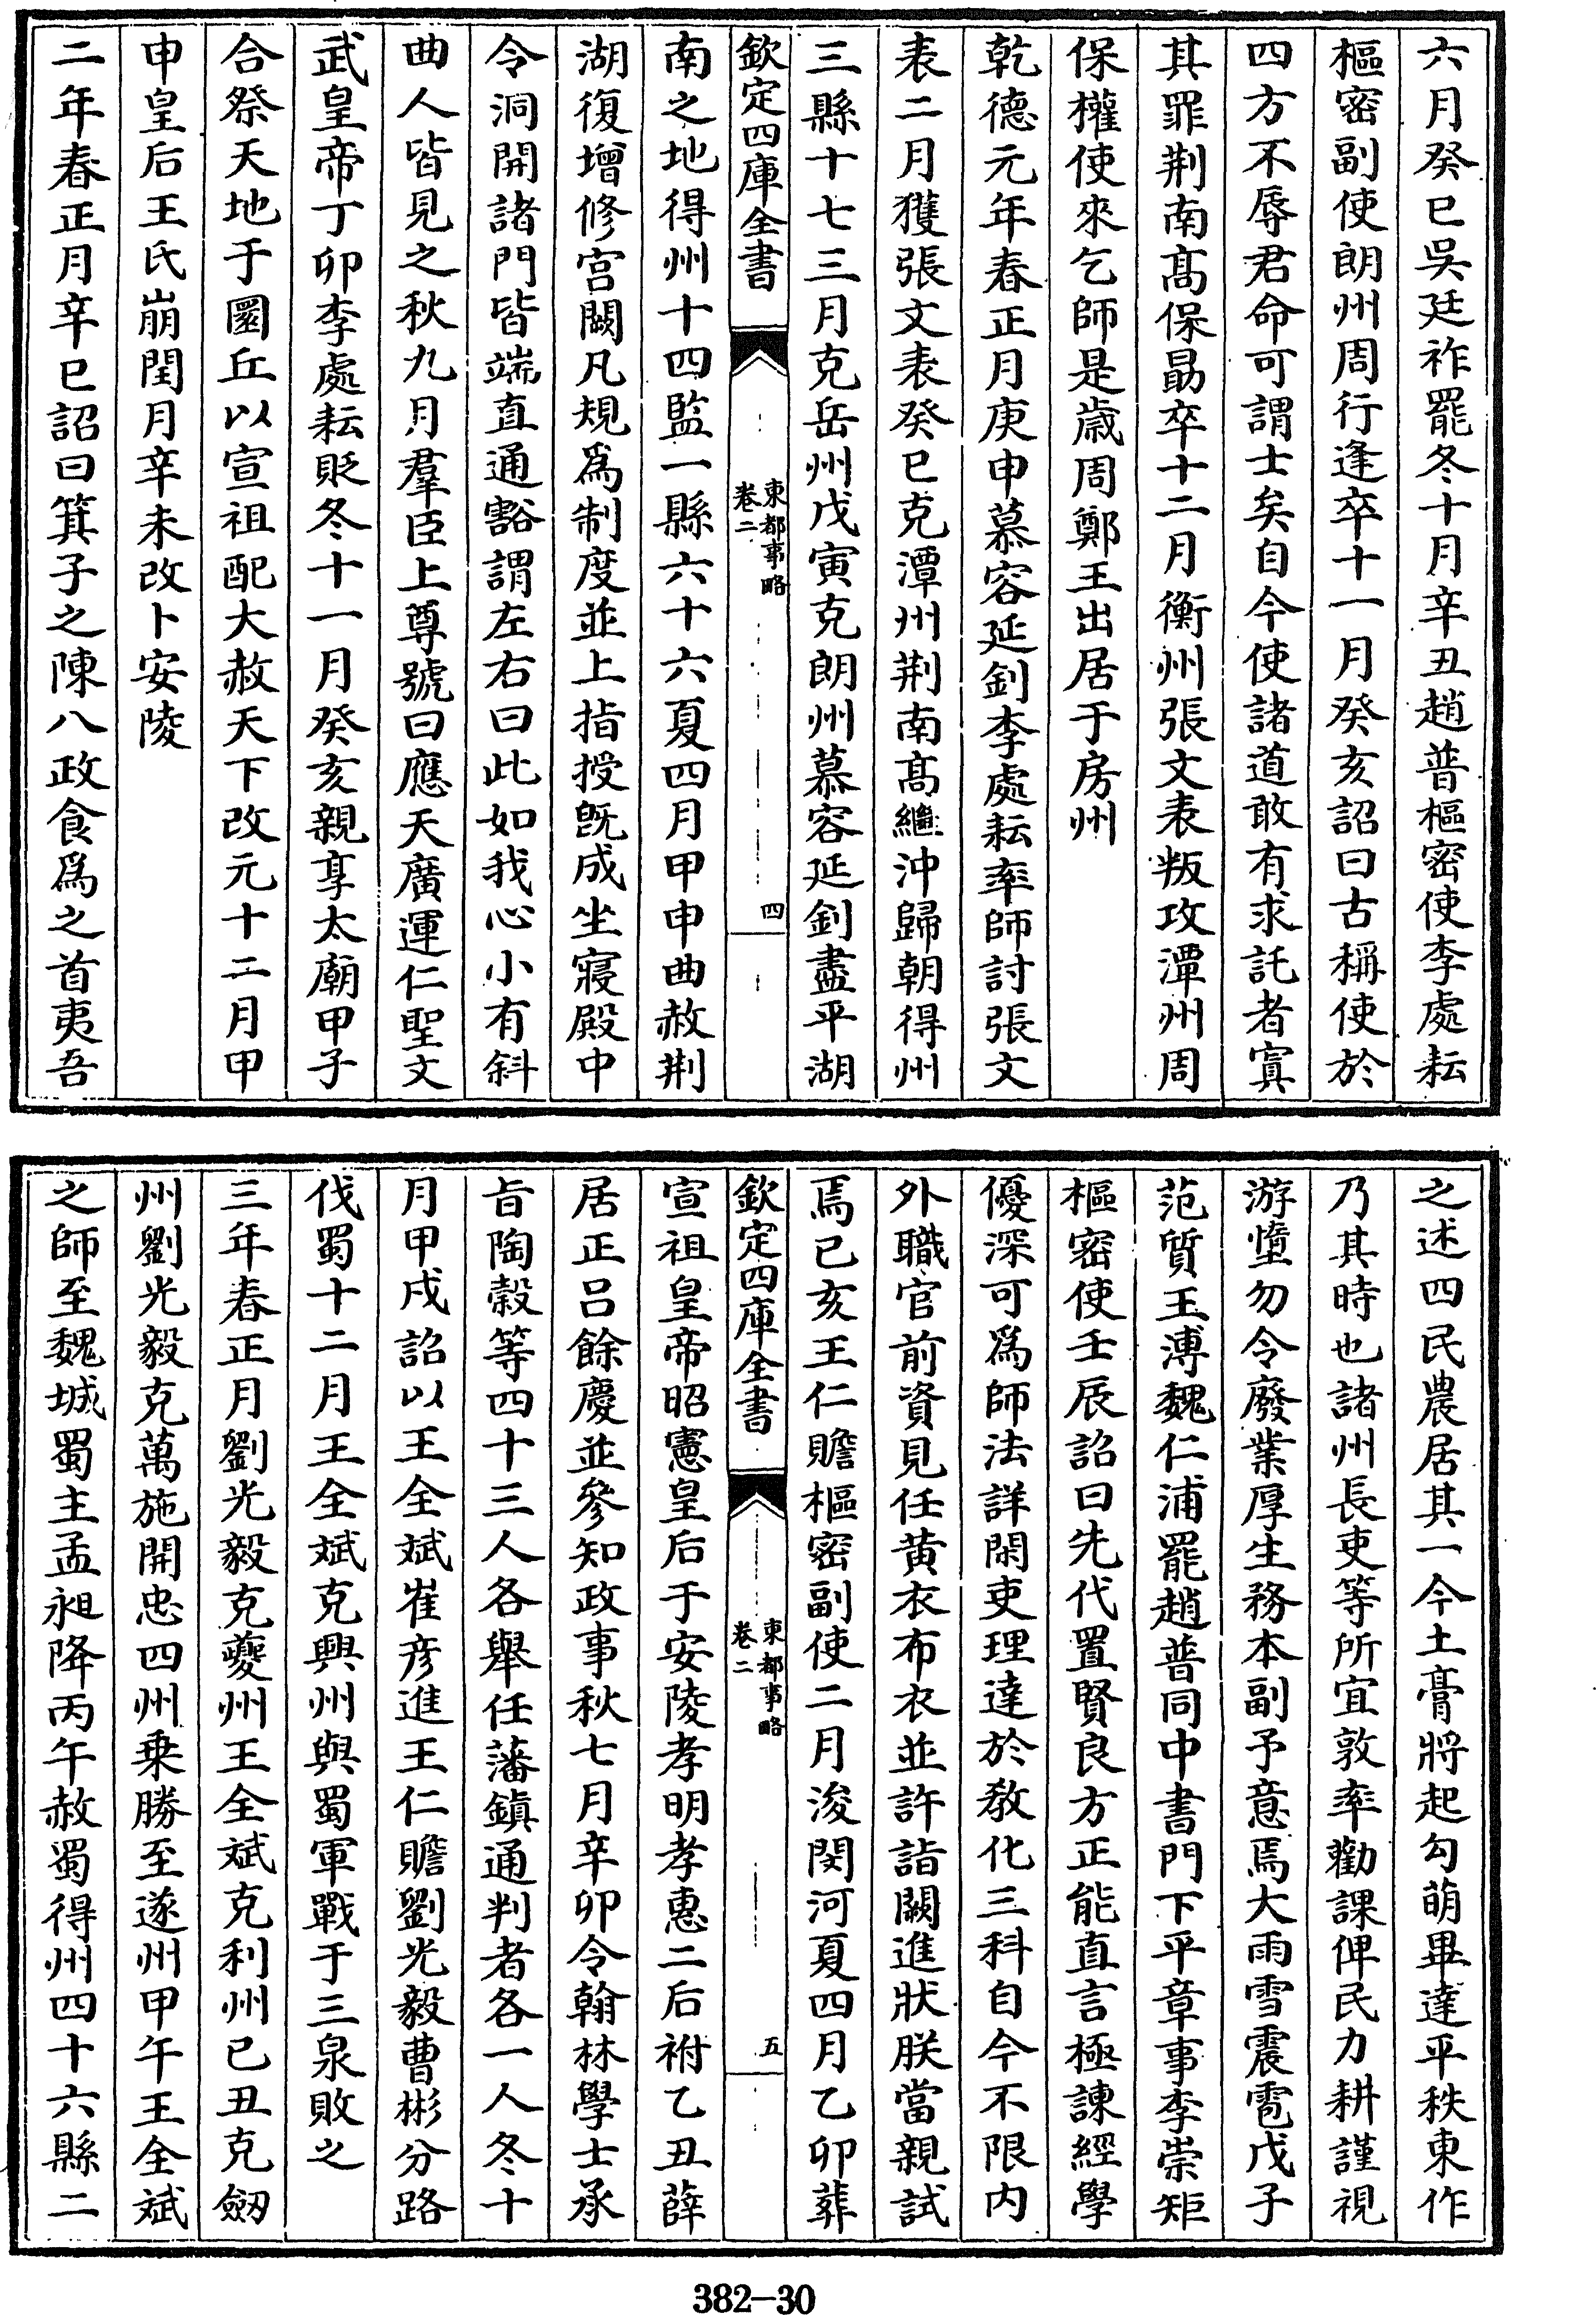 六月癸巳吳廷祚罷冬十月辛丑趙普樞密使李處耘
樞密副使朗州周行逢卒十一月癸亥詔曰古稱使於
四方不辱君命可謂士矣自今使諸道敢有求託者寘
其罪荆南髙保勗卒十二月衡州張文表叛攻潭州周
保權使來乞師是歳周鄭王出居于房州
乾德元年春正月庚申慕容延釗李處耘率師討張文
表二月獲張文表癸巳克潭州荆南髙繼沖歸朝得州
三縣十七三月克岳州戊寅克朗州慕容延釗盡平湖
欽定四庫全書
東都事略
卷二
四
南之地得州十四監一縣六十六夏四月甲申曲赦荆
湖復增修宫闕凡規爲制度並上指授旣成坐寢殿中
令洞開諸門皆端直通豁謂左右曰此如我心小有斜
曲人皆見之秋九月羣臣上尊號曰應天廣運仁聖文
武皇帝丁卯李處耘貶冬十一月癸亥親享太廟甲子
合祭天地于圜丘以宣祖配大赦天下改元十二月甲
申皇后王氏崩閏月辛未改卜安陵
二年春正月辛巳詔曰箕子之陳八政食爲之首夷吾
之述四民農居其一今土膏將起勾萌畢達平秩東作
乃其時也諸州長吏等所宜敦率勸課俾民力耕謹視
游墯勿令廢業厚生務本副予意焉大雨雪震雹戊子
范質王溥魏仁浦罷趙普同中書門下平章事李崇矩
樞密使壬辰詔曰先代置賢良方正能直言極諫經學
優深可爲師法詳閑吏理達於敎化三科自今不限内
外職官前資見任黄衣布衣並許詣闕進狀朕當親試
焉已亥王仁贍樞密副使二月浚閔河夏四月乙卯葬
欽定四庫全書
東都事略
卷二
五
宣祖皇帝昭憲皇后于安陵孝明孝惠二后祔乙丑薛
居正吕餘慶並參知政事秋七月辛卯令翰林學士承
旨陶穀等四十三人各舉任藩鎮通判者各一人冬十
月甲戌詔以王全斌崔彦進王仁贍劉光毅曹彬分路
伐蜀十二月王全斌克興州與蜀軍戰于三泉敗之
三年春正月劉光毅克夔州王全斌克利州已丑克劒
州劉光毅克萬施開忠四州乗勝至遂州甲午王全斌
之師至魏城蜀主孟昶降丙午赦蜀得州四十六縣二
382-30